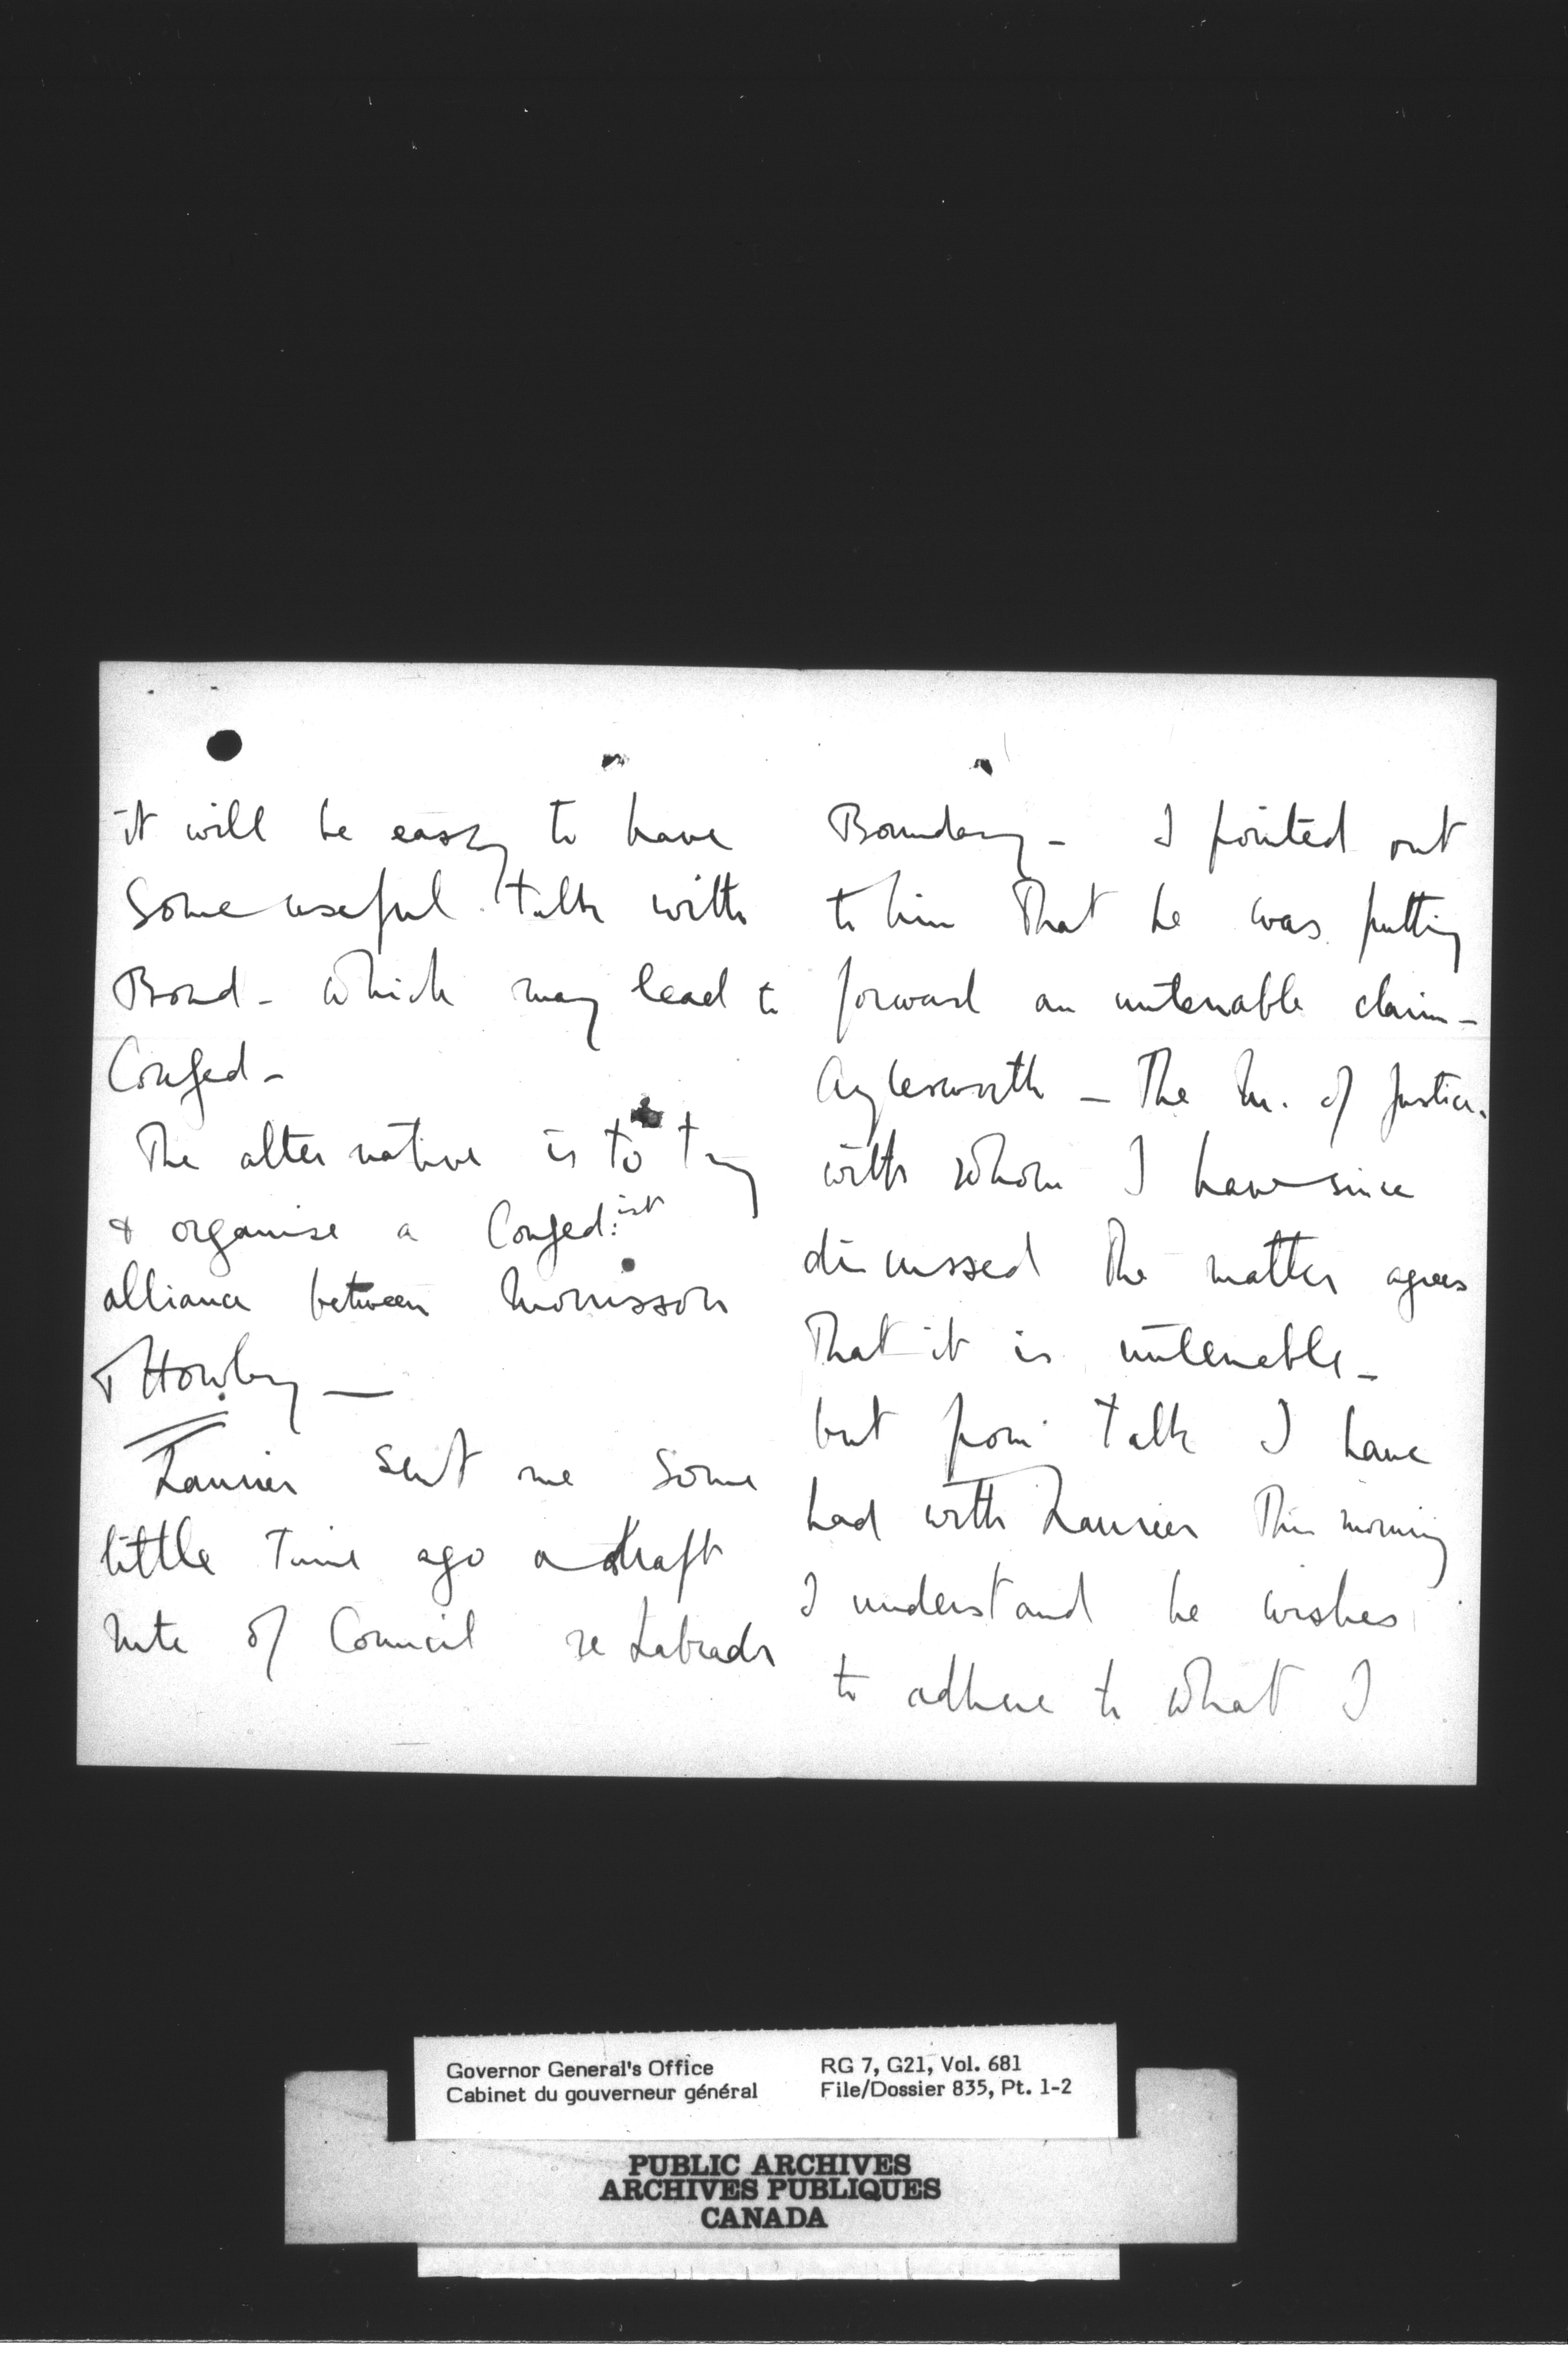 it will be easy to have
some useful talk with
Bond - which may lead to
Confed -
The alternative is to try
& organise a Confed:ist
alliance between Morrisson
& Howley —
Laurier sent me some
little time ago a draft
Mte of Council re Labradr
Boundary - I pointed out
to him that he was putting
forward an untenable claim -
Aylesworth - The M. of Justice.
with whom I have since
discussed the matter agrees
that it is untenable -
but from talk I have
had with Laurier this morning
I understand he wishes
to adhere to what I
Governor General's Office
Cabinet du gouverneur général
RG 7, G21, Vol. 681
File/Dossier 835, Pt. 1-2
PUBLIC ARCHIVES
ARCHIVES PUBLIQUES
CANADA